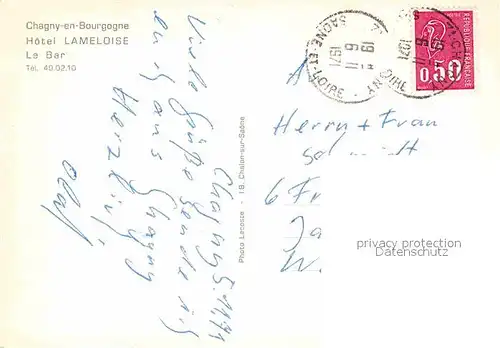 Chagny-en-Bourgogne
Hôtel LAMELOISE
Le Bar
Tél. 40.02.10
Chagny, 5.11.71
Viele Grüße sende ich
Euch aus Chagny
Herzlich
Olaf
Photo Lecosze - 18, Chalon-sur-Saône
71 CHAGNY
19 H
6 - 11
1971
SAONE-ET-LOIRE
REPUBLIQUE FRANÇAISE
0,50
Herrn + Frau
6 Fr
Ja
W.
privacy protection
Datenschutz